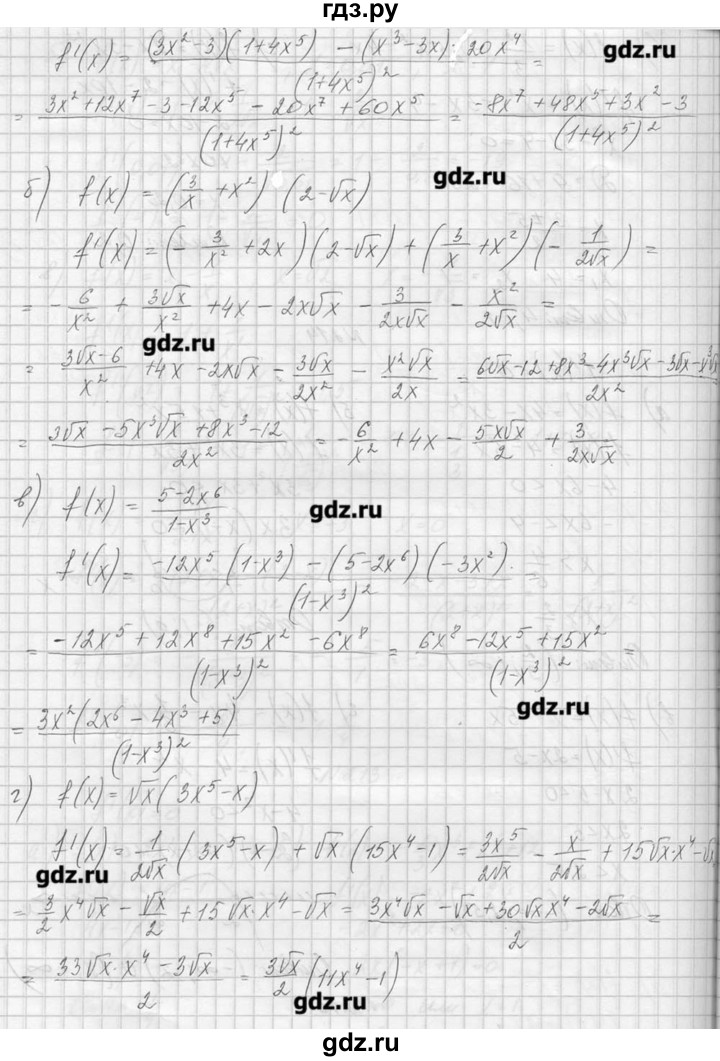 гдз.ру
f'(x) = (3x² - 3)(1+4x⁵) - (x³ - 3x)·20x⁴ / (1+4x⁵)² =
gdz.ru
= 3x² + 12x⁷ - 3 - 12x⁵ - 20x⁷ + 60x⁵ / (1+4x⁵)² = -8x⁷ + 48x⁵ + 3x² - 3 / (1+4x⁵)²
б) f(x) = (3/x + x²) (2-√x)
gdz.ru
f'(x) = (- 3/x² + 2x)(2-√x) + (3/x + x²)(- 1/2√x) =
= - 6/x² + 3√x/x² + 4x - 2x√x - 3/2x√x - x²/2√x =
gdz.ru
= 3√x - 6/x² + 4x - 2x√x - 3√x/2x² - x²√x/2x = 6√x - 12 + 8x³ - 4x³√x - 3√x - x³√x/2x²
= 3√x - 5x³√x + 8x³ - 12/2x² = - 6/x² + 4x - 5x√x/2 + 3/2x√x
в) f(x) = 5-2x⁶/1-x³
gdz.ru
f'(x) = -12x⁵(1-x³) - (5-2x⁶)(-3x²)/(1-x³)² =
= -12x⁵ + 12x⁸ + 15x² - 6x⁸/(1-x³)² = 6x⁸ - 12x⁵ + 15x²/(1-x³)² =
gdz.ru
= 3x²(2x⁶ - 4x³ + 5)/(1-x³)²
г) f(x) = √x(3x⁵-x)
f'(x) = 1/2√x (3x⁵-x) + √x (15x⁴-1) = 3x⁵/2√x - x/2√x + 15√x·x⁴ - √x
gdz.ru
= 3/2 x⁴√x - √x/2 + 15√x·x⁴ - √x = 3x⁴√x - √x + 30√x x⁴ - 2√x/2 =
= 33√x·x⁴ - 3√x/2 = 3√x/2 (11x⁴-1)
gdz.ru
gdz.ru